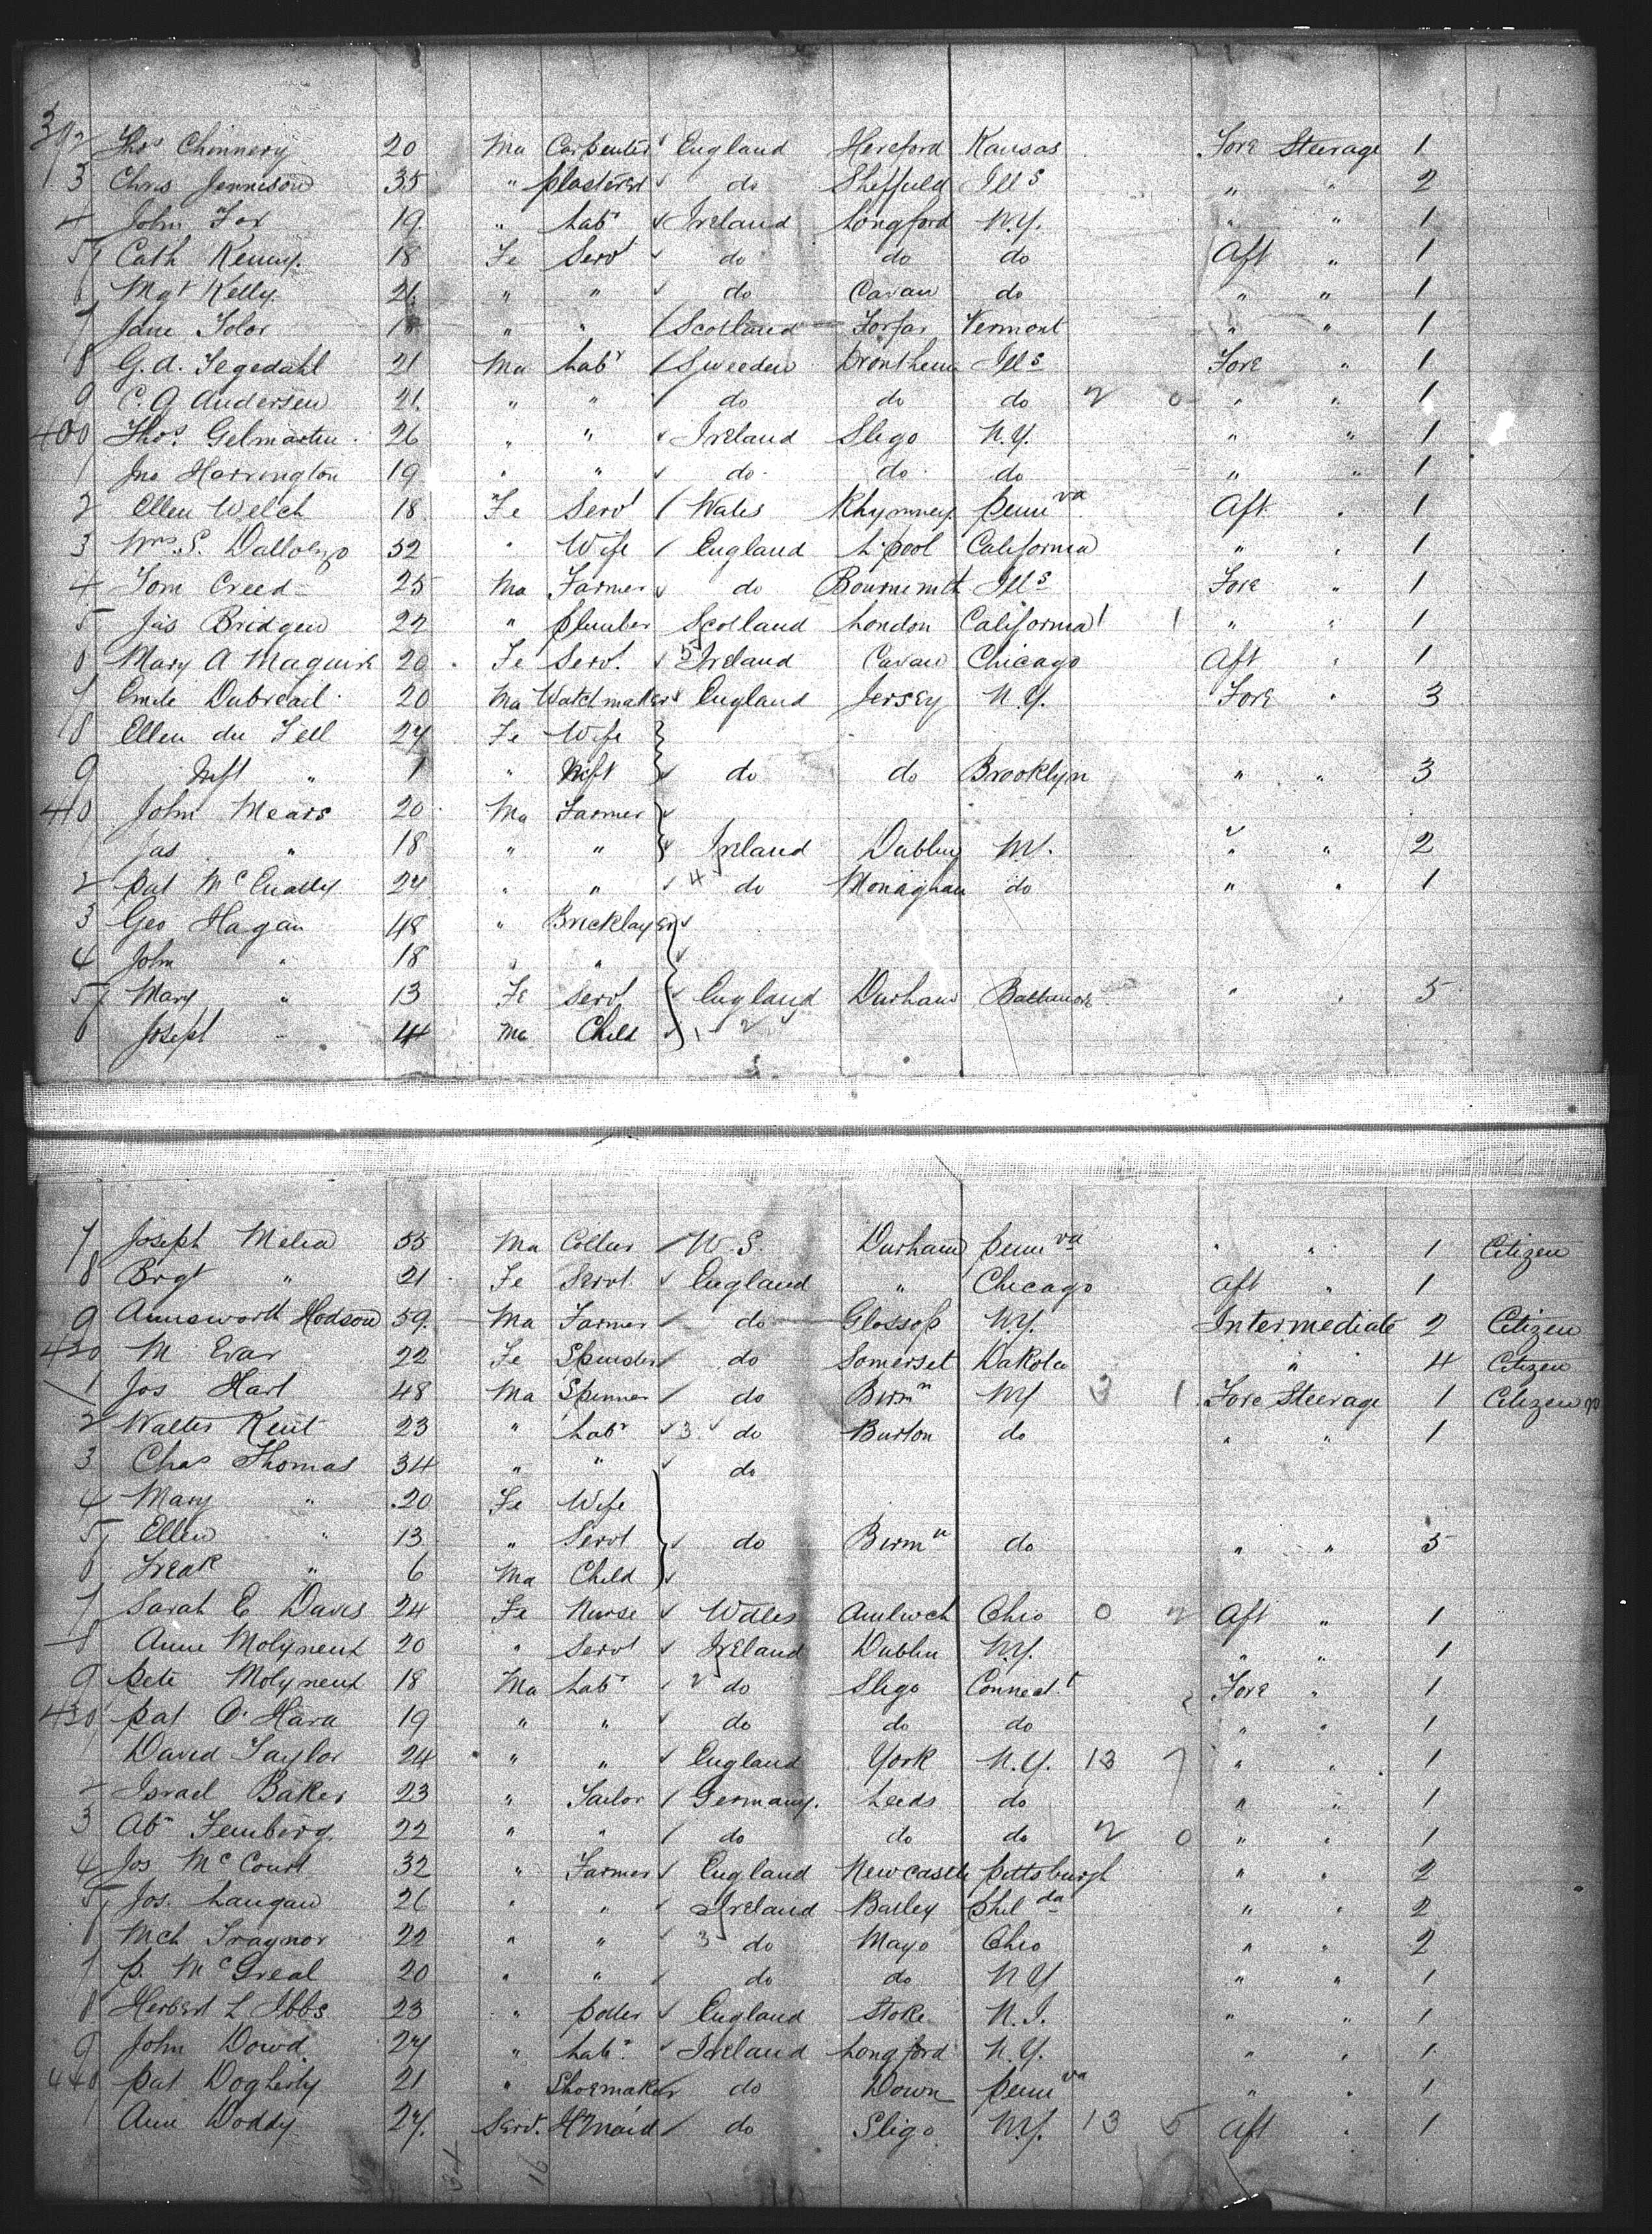 392 Thos Chinnery 20 Ma Carpenter England Hereford Kansas Fore Steerage 1
3 Chris Jennison 35 " plasterer do Sheffield Ills " " 2
4 John Fox 19 " Labr Ireland Longford N.Y. " " 1
5 Cath Kenny 18 Fe Servt do do do Aft " 1
6 Mgt Kelly 21 " " do Cavan do " " 1
7 Jane " " Scotland Forfar Vermont " " 1
8 G. A. Segedahl 21 Ma Labr Sweeden Drontheim Ills Fore " 1
9 C. A Andersen 21 " " do do do 2 0 " " 1
400 Thos Gelmartin 26 " " Ireland Sligo N.Y. " " 1
1 Jno Harrington 19 " " do do do " " 1
2 Ellen Welch 18 Fe Servt Wales Rhymney Pennva Aft " 1
3 Mrs S. 52 " Wife England L'pool California " " 1
4 Tom Creed 25 Ma Farmer do Bournemth Ills Fore " 1
5 Jas Bridgen 22 " plumber Scotland London California 1 1 " " 1
6 Mary A Maguire 20 Fe Servt 5 Ireland Cavan Chicago Aft " 1
7 Emile Dubreail 20 Ma Watchmaker England Jersey N.Y. Fore " 3
8 Ellen du Fell 27 Fe Wife
9 Inft " 1 " Inft do do Brooklyn " " 3
410 John Mears 20 Ma Farmer
Jas " 18 " " Ireland Dublin NY. " " 2
2 Pat 24 " " 4 do Monaghan do " " 1
3 Geo Hagan 48 " Bricklayer
4 John " 18 " "
5 Mary " 13 Fe Servt England Durham Baltimore " " 5
6 Joseph " 4 Ma Child 1 2
7 Joseph Melia 55 Ma Collier U.S. Durham Pennva " " 1 Citizen
8 Brgt " 21 Fe Servt England " Chicago Aft " 1
9 Hodson 59 Ma Farmer do Glossop NY. Intermediate 2 Citizen
420 M Evar 22 Fe Spinster do Somerset Dakota " 4 Citizen
1 Jos Hart 48 Ma Spinner do Birmn NY 3 1 Fore Steerage 1 Citizen
2 Walter Kent 23 " Labr 3 do Burton do " " 1
3 Chas Thomas 34 " " do
4 Mary " 20 Fe Wife
5 Ellen " 13 " Servt do Birmn do " " 5
6 Fredk " 6 Ma Child
7 Sarah E Davis 24 Fe Nurse Wales Amlwch Ohio 0 2 Aft " 1
8 Anne Molyneux 20 " Servt Ireland Dublin NY. " " 1
9 Pete Molyneux 18 Ma Labr 2 do Sligo Connect.t Fore " 1
430 Pat O'Hara 19 " " do do do " " 1
1 David Taylor 24 " " England York N.Y. 13 7 " " 1
2 Israel Baker 23 " Tailor Germany Leeds do " " 1
3 Abm Feinberg 22 " " do do do 2 0 " " 1
4 Jos McCourt 32 " Farmer England Newcastle Pittsburgh " " 2
5 Jos. Langan 26 " " Ireland Philda " " 2
6 Mch Traynor 22 " " 3 do Mayo Ohio " " 2
7 P. McGreal 20 " " do do NY " " 1
8 Herbert L Ibbs 23 " Potter England Stoke N.J. " " 1
9 John Dowd 27 " Labr Ireland Longford N.Y. " " 1
440 Pat Dogherty 21 " Shoemaker do Down Pennva " " 1
1 Ann Doddy 27 Servt H'maid do Sligo N.Y. 13 5 Aft " 1